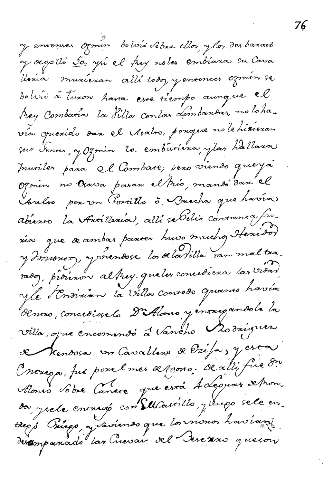 76
y entonces Ozmin bolvió sobre ellos, y los desbarató
y degolló, y si el Rey no les embiara su Cava
lleria murieran alli todos, y entonces Ozmin se
bolvió a Turon hasta este tiempo aunque el
Rey Combatia la Villa con las Lombardas, no lo ha
via querido dar el Asalto, porque no le hicieran
y Ozmin lo embiviera y las hallara
para el Combate; pero viendo que ya
Ozmin no osava pasar el Rio, mandó dar el
Asalto por un Portillo ó Brecha que havia
abierto la Artilleria, alli se Peleó con tanta fu
ria que de ambas partes huvo muchos Heridos
y Muertos, y viendose los de la Villa tan mal tra
tados, pidieron al Rey que les concediera las vidas
y le Rendirian la Villa con todo quanto havia
dentro, concedioselo Dn. Alonso y entregandole la
Villa, que encomendó á Sancho Rodriguez
de Mendoza un Cavallero de Ezija, y esta
Entrega, fue por el mes de Agosto. de alli fue Dn.
Alonso sobre Cañete que está 4 leguas de Ron
da y se le entregó con su Castillo, y luego se le en
tregó Priego, y sabiendo que los moros havian
desamparado las Cuevas del Becerro que son